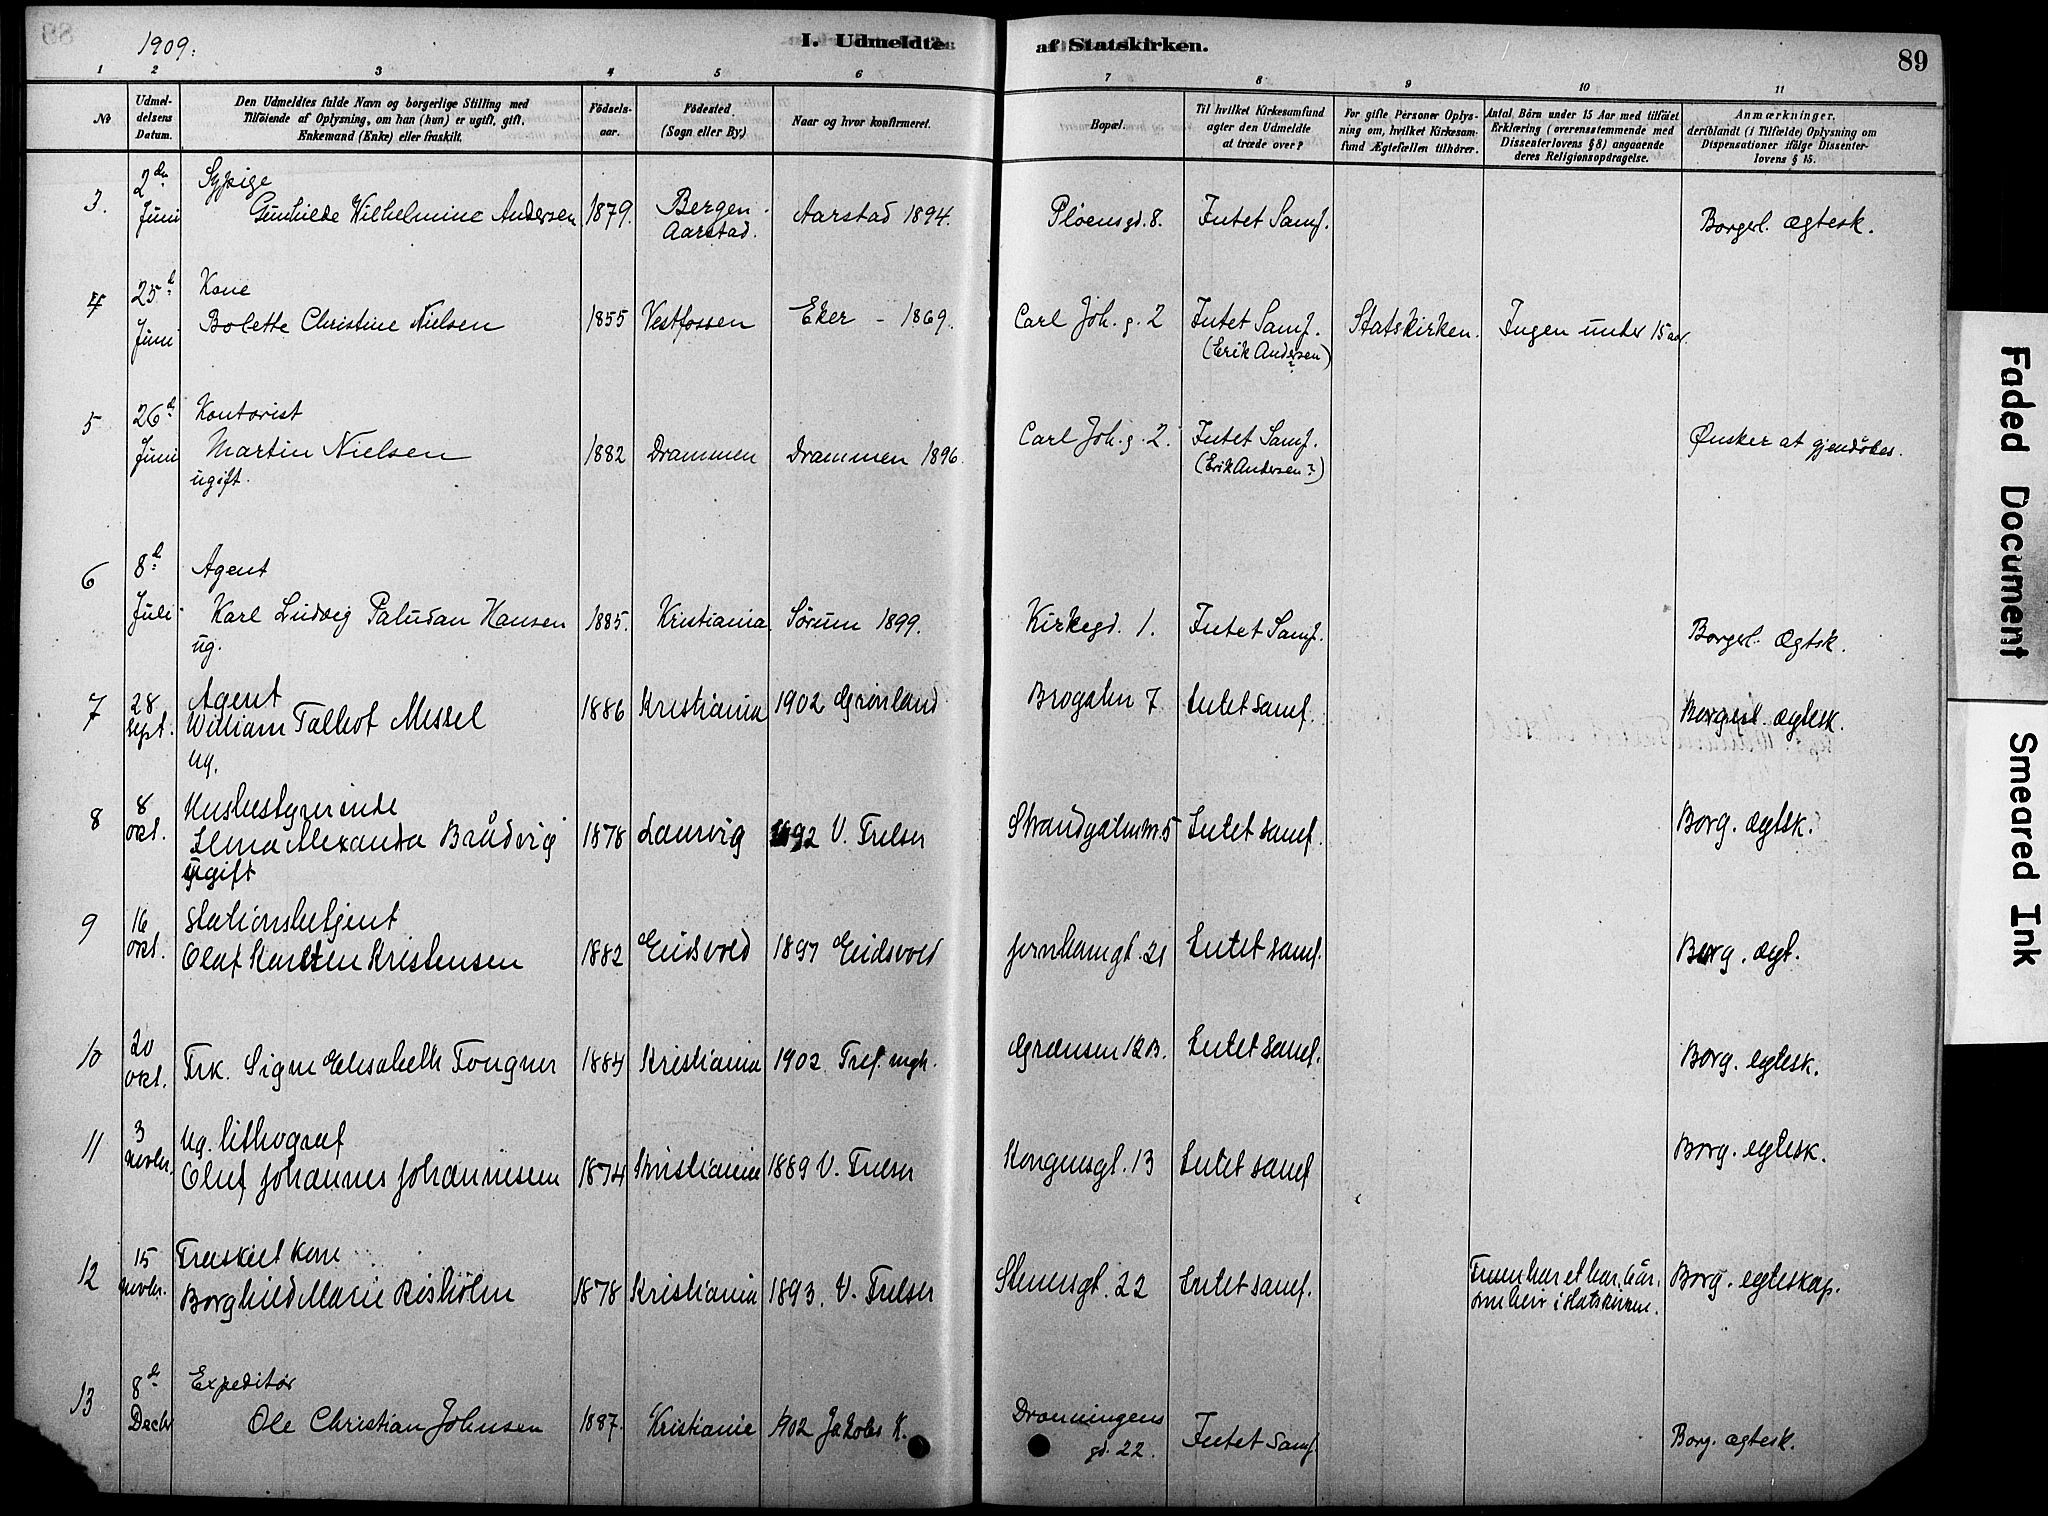 1909. I. Udmeldte af Statskirken. 89
1 2 3 4 5 6 7 8 9 10 11
No
Udmel-
delsens
Datum.
Den Udmeldtes fulde Navn og borgerlige Stilling med
Tilføiende af Oplysning, om han (hun) er ugift, gift,
Enkemand (Enke) eller fraskilt.
Födsels-
aar.
Födested
(Sogn eller By.)
Naar og hvor konfirmeret.
Bopæl.
Til hvilket Kirkesamfund
agter den Udmeldte
at træde over?
For gifte Personer Oplys-
ning om, hvilket Kirkesam-
fund Ægtefællen tilhörer.
Antal Börn under 15 Aar med tilføiet
Erklæring (overensstemmende med
Dissenterlovens § 8) angaaende
deres Religionsopdragelse.
Anmærkninger,
deriblandt (i Tilfælde) Oplysning om
Dispensationer ifölge Dissenter-
lovens § 15.
3. 2den Juni Sypige
Gunhilde Wilhelmine Andersen 1879. Bergen Aarstad. Aarstad 1894. Pløensgd. 8. Intet Samf. Borgerl. Ægtesk.
4 25d Juni Kone
Bolette Christine Nielsen 1855 Vestfossen Eker - 1869. Carl Joh. g. 2 Intet Samf. (Erik Andersen?) Statskirken. Ingen under 15 aar
5 26d Juni Kontorist
Martin Nielsen 1882 Drammen Drammen 1896. Carl Joh. g. 2. Intet Samf. (Erik Andersen?) Ønsker at gjendöbes.
ugift.
6 8d Juli Agent
Karl Ludvig Paludan Hansen 1885. Kristiania Sørum 1899. Kirkegd. 1. Intet Samf. Borgerl. Ægtsk.
ug.
7 28 sept. Agent
William Talbot Messel 1886 Kristiania 1902 Grønland Brogaten 7 Intet samf. Borgerl. ægtesk.
ug.
8 8 okt. Husbestyrerinde
Alexandra Brudvig 1878 Laurvig 1892 V. Frelser Strandgaten 5 Intet samf. Borg. ægtsk.
ugift
9 16 okt. Stationsbetjent
Olaf Karsten Kristensen 1882 Eidsvold 1897 Eidsvold Jernbanegt. 21 Intet samf. Borg. ægt.
10 20 okt. Frk. Signe Elisabeth Fougner 1884 Kristiania 1902 Tref. mgh. Grænsen 12B. Intet samf. Borg. egtesk.
11 3 novbr. Ug. lithograf
Oluf Johannes Johannesen 1874 Kristiania 1889 V. Frelser Kongensgt. 13 Intet samf. Borg. egtesk.
12 15 novbr. Fraskilt kone
Borghild Marie Risholm 1878 Kristiania 1893. V. Frelser Stensgt. 22 Intet samf. Fruen har et barn i statskirken. Borg. egteskap.
13 8de Decbr Expeditør
Ole Christian Johnsen 1887. Kristiania 1902 Jakobs K. Dronningens gd. 22. Intet Samf Borg. ægtesk.
Faded Document
Smeared Ink